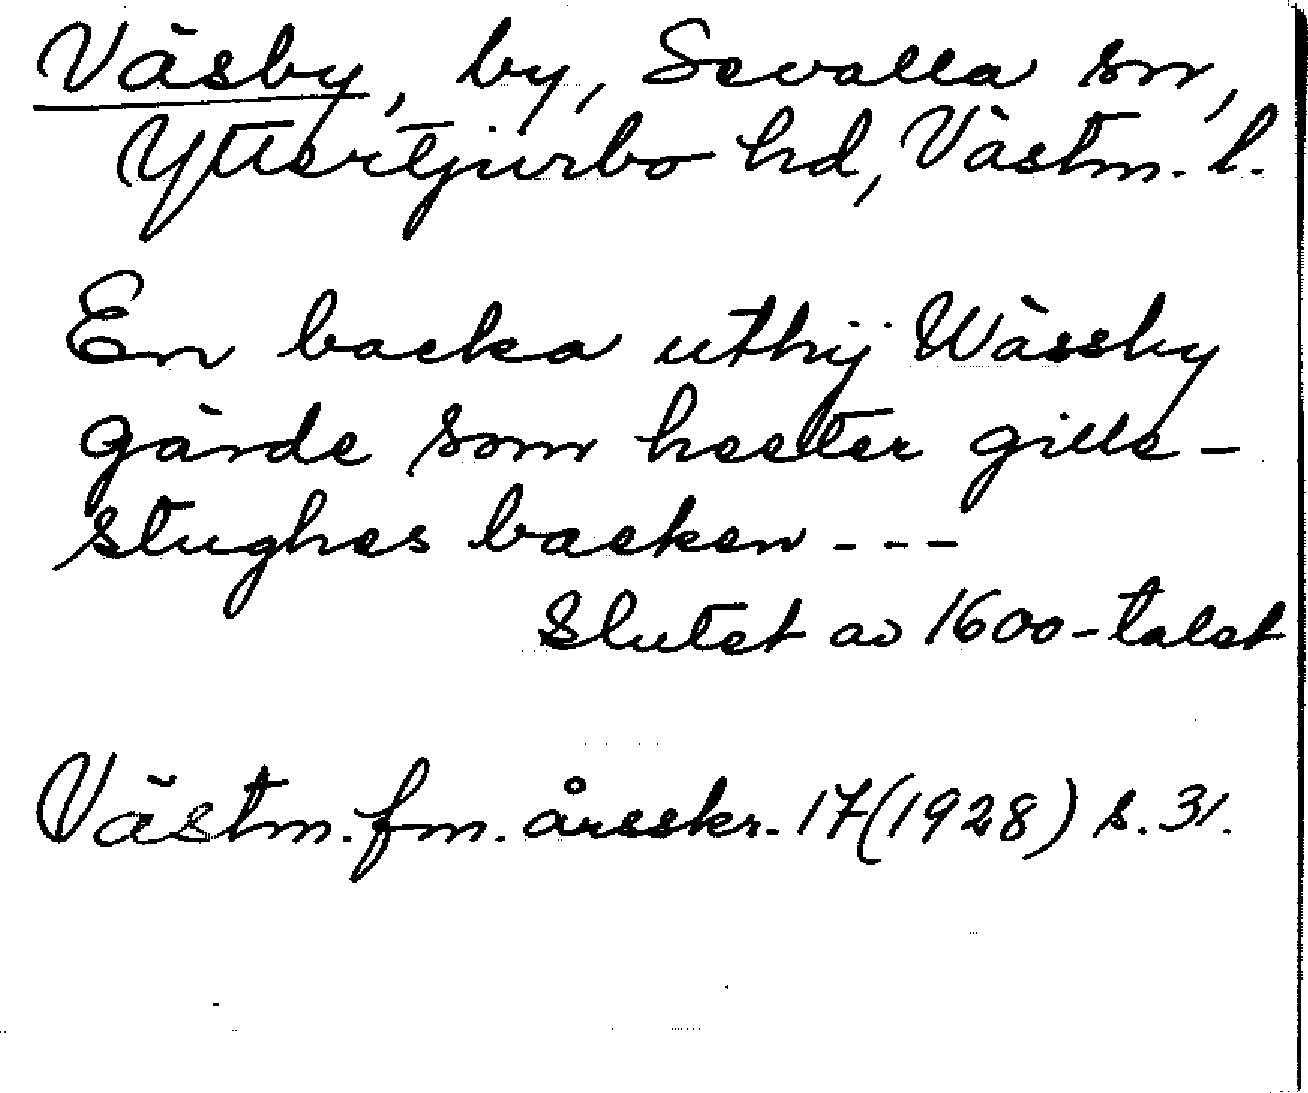 Väsby, by, Sevalla sn,
Yttertjurbo hd, Västm. l.
En backa uthij Wässby
gärde som heeter gille-
stughes backen ---
Slutet av 1600-talet
Västm. fm. årsskr. 17(1928) s. 31.